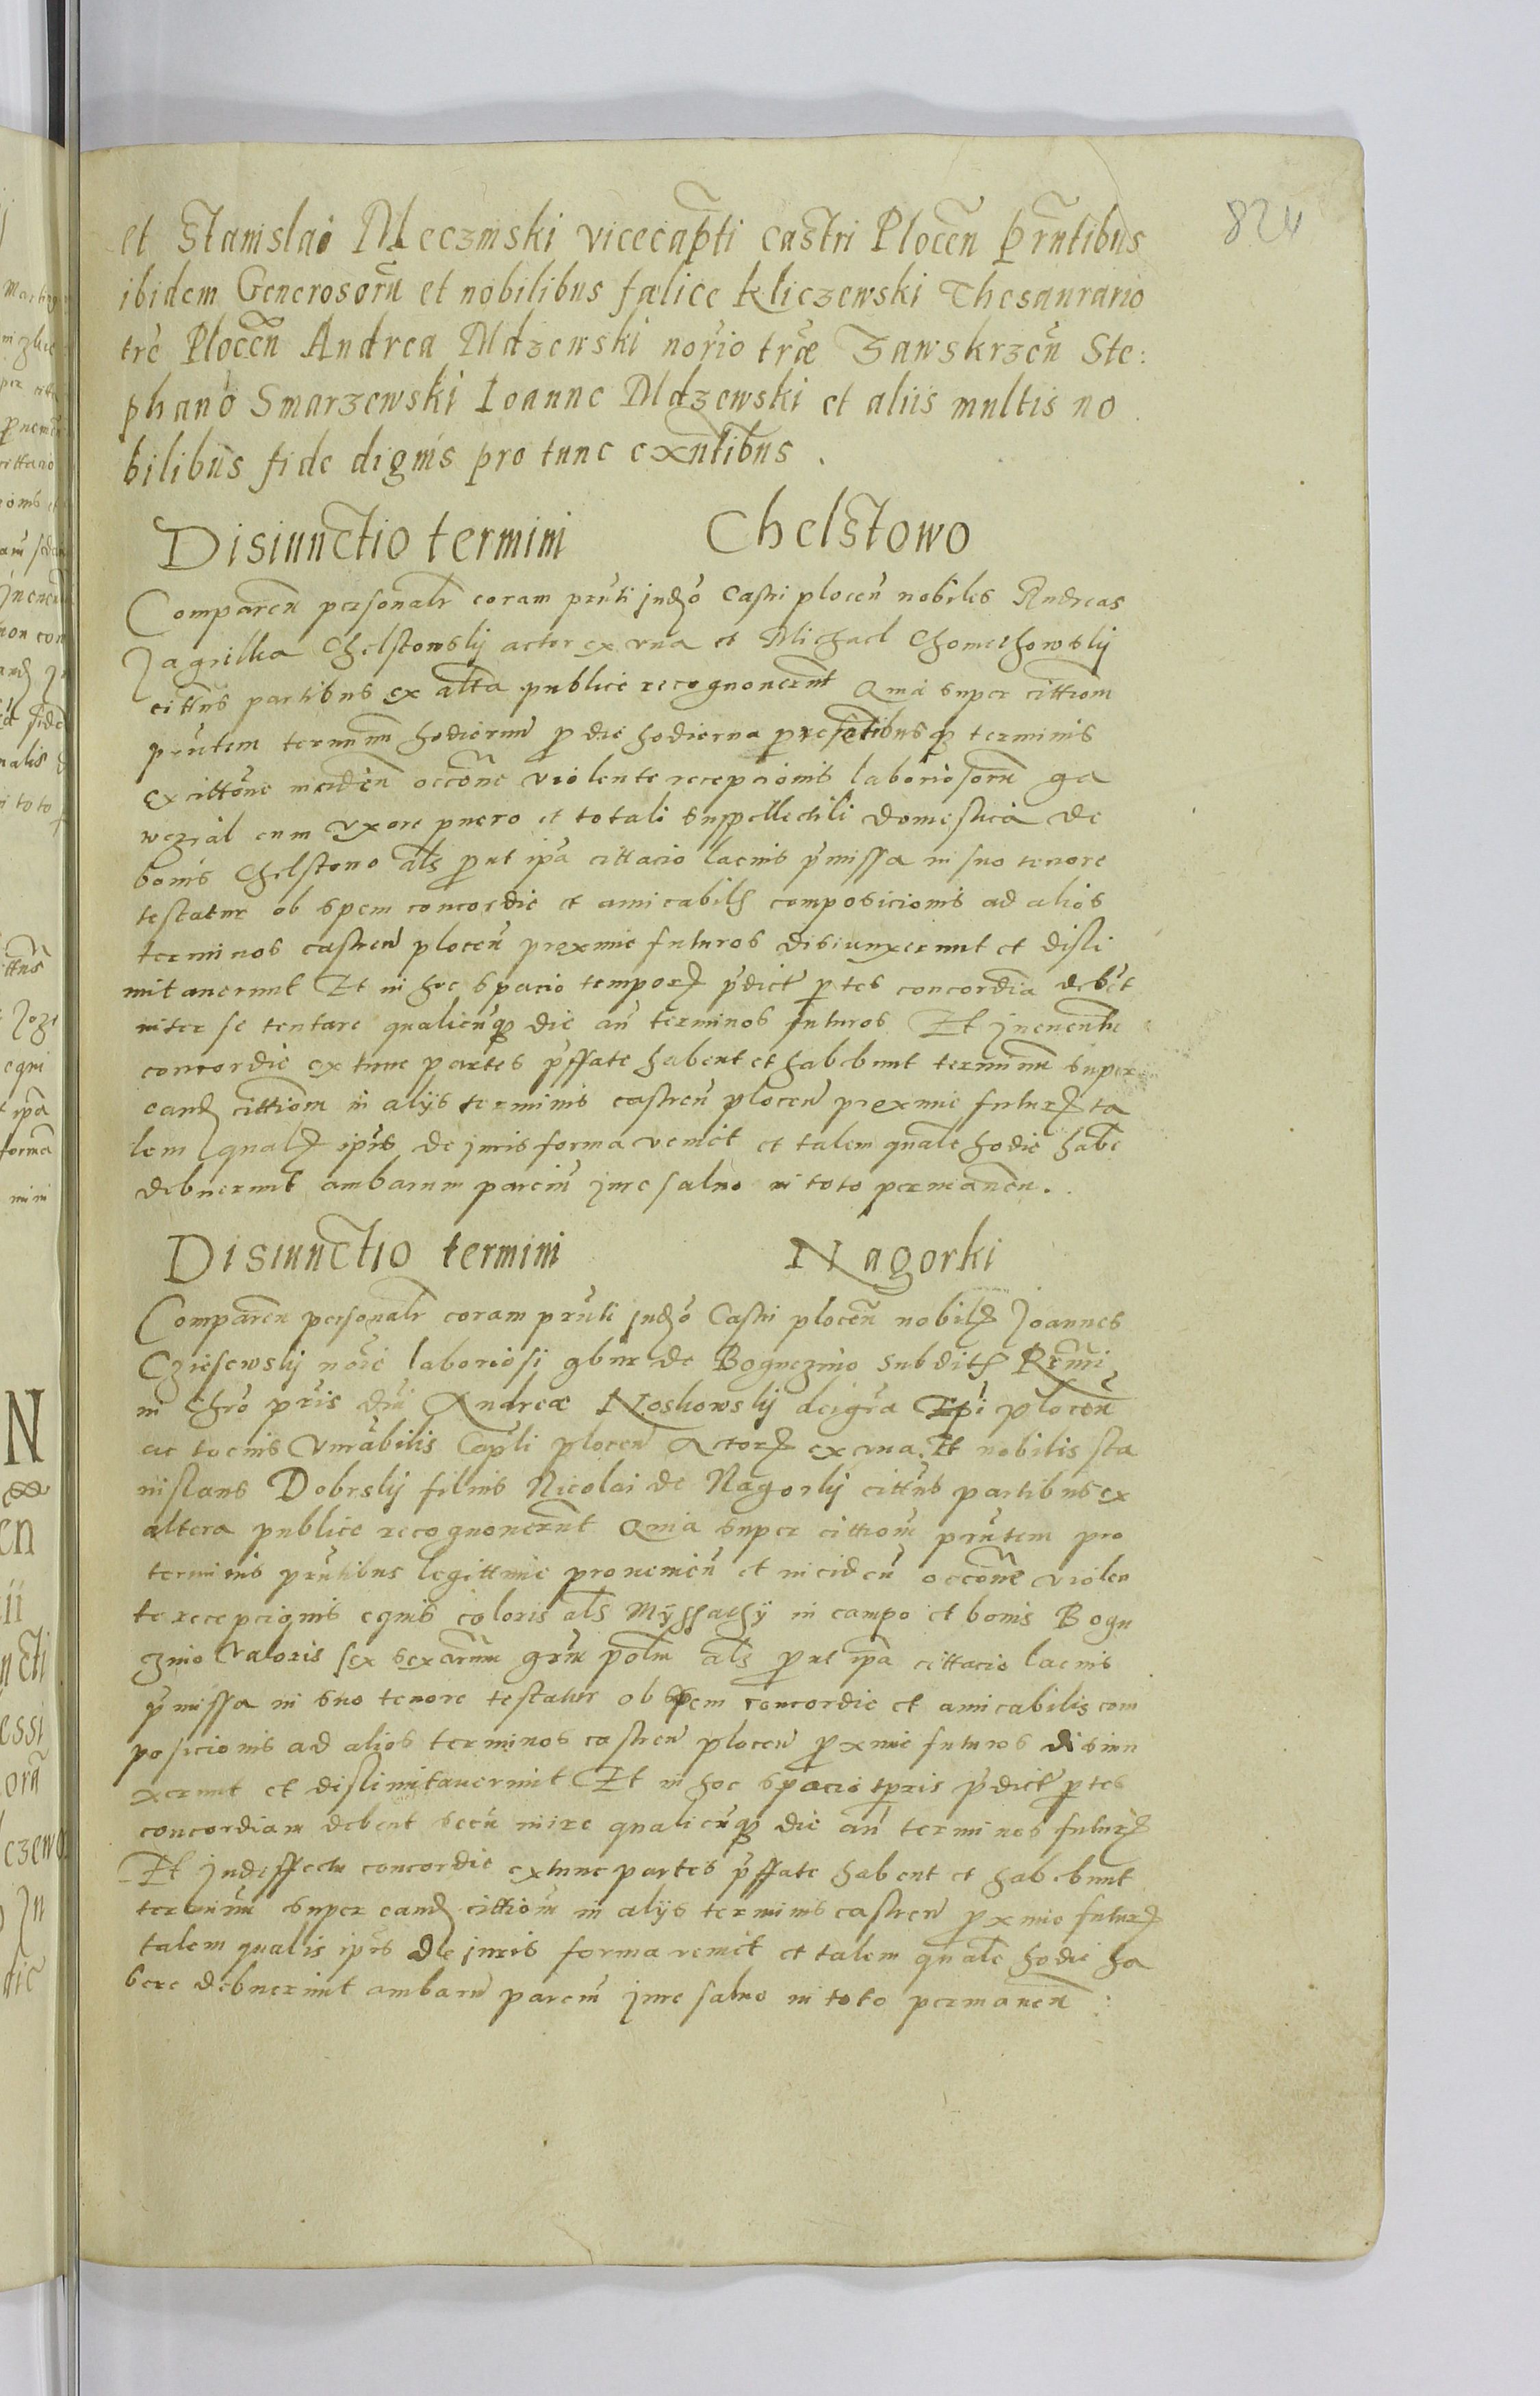 824
et Stanislao Meczinski vicecapti castri Plocen prntibus
ibidem Generosoru et nobilibus fælice Kliczewski Thesaurario
tre Plocen Andrea Mdzewski norio træ Zawskrzen Ste:
phano Smarzewski Ioanne Mdzewski et aliis multis no
bilibus fide dignis pro tunc exntibus.
Disiunctio termini Chelstowo
Comparen personalr coram prnti judo Castri plocen nobiles Andreas
Jagielka Chelstowsky actor ex vna et Michael Chomethowsky
cittus partibus ex alta publice recognouerunt Quia super cittiom
prntem terminum hodiernu pro die hodierna presentibusq terminis
ex cittone inciden occone violente recepcionis laboriosoru ga
wezial cum vxore puero et totali suppellectili domestica de
bonis Chelstowo als prout ipa cittacio lacius pmissa in suo tenore
testatur ob spem concordie et amicabilis composicionis ad alios
terminos castren plocen proxime futuros disiunxerunt et disli
mitauerunt Et in hoc spacio temporis pdicte ptes concordia debet
inter se tentare qualicunq die an terminos futuros Et jneuentu
concordie ex tunc partes pffate habent et habebunt terminum super
eand cittiom in alijs terminis castren plocen proxime futuris ta
lem qualis ipis de juris forma venit et talem quale hodie habe
debuerunt ambarum parciu jure saluo in toto permanen.
Disiunctio termini Nagorki
Comparen personalr coram prnti judo Castri plocen nobilis Joannes
Cziesewsky noie laboriosi gbur de Boguczino subditi Rmi
in Chro pris dni Andreæ Noskowsky dei gra Epi plocen
ac tocius Vnrabilis Capli plocen Actoris ex vna. Et nobilis sta
nislaus Dobrsky filius Nicolai de Nagorky cittus partibus ex
altera publice recognouerunt Quia super cittiom prntem pro
terminis prntibus legittime proueni en et inciden occone violen
te recepcionis equis coloris als Myssathy in campo et bonis Bogu
zino Valoris sex sexarum gru polm als prout ipa cittacio lacius
pmissa in suo tenore testatur ob spem concordie et amicabilis com
posicionis ad alios terminos castren plocen proxime futuros disiun
xerunt et dislimitauerunt Et in hoc spacio tpris pdicte ptes
concordiam debent secu inire qualicunq die an terminos futuris
Et jndeffectu concordie extunc partes pffate habent et habebunt
terminum super eand cittiom in alijs terminis castren proxime futuris
talem qualis ipis de juris forma venit et talem quale hodie ha
bere debuerunt ambaru parciu jure saluo in toto permanen: